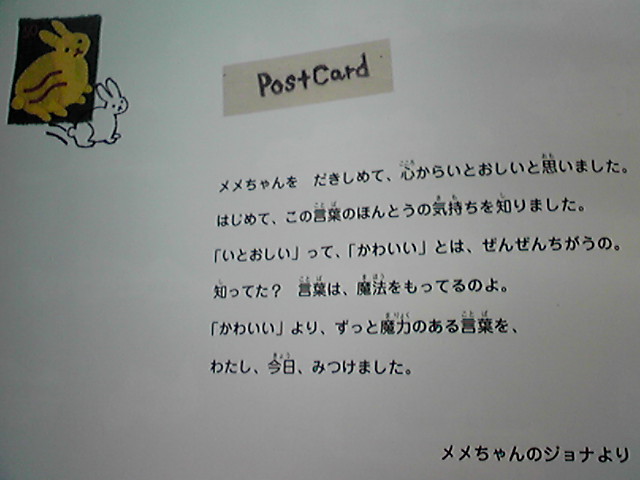 PostCard
メメちゃんを だきしめて、心からいとおしいと思いました。
はじめて、この言葉のほんとうの気持ちを知りました。
「いとおしい」って、「かわいい」とは、ぜんぜんちがうの。
知ってた? 言葉は、魔法をもってるのよ。
「かわいい」より、ずっと魔力のある言葉を、
わたし、今日、みつけました。
メメちゃんのジョナより